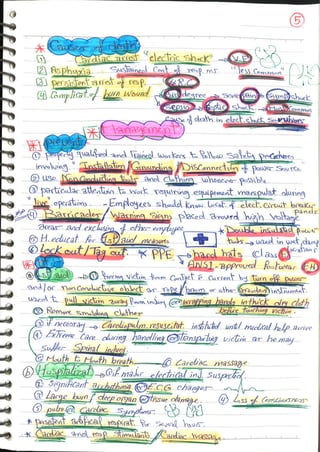 5
* Causes of death
1 Cardiac arrest "electric shock" → V.F
2 Asphyxia Sustained Cont. of resp. ms "less common"
3 persistent arrest of resp.
4 Complicat. of burn wound → degree → shock
Sepsis → Septic shock →
Cause of death in elect. shock survivors
* Management
* prevent
1 properly qualified and Trained workers to follow Safety procedures
involving "Installation / Grounding / Disconnection" of power source
2 use Non Conductive tools and clothing whenever possible
3 particular attention to work requiring equipment manipulat. during
live operations - Employees should know locat. of elect. circuit breaker
panels
4 Barricades / Warning Signs placed around high voltage
areas and exclusion of other employee * Double insulated power
tools → used in wet, damp
weather
5 H. educat. for 1st aid measures
6 Lock out / Tag out. * PPE → hard hats Class
ANSI - approved footwear
a 1st aid → 1 Freeing victim from Contact & Current by Turn off power
and/or non Conductive object as rope / broom or other wooden instrument
used to pull victim away from injury or wrapping hands in thick dry cloth
before touching victim.
2 Remove smoldering clothes
3 if necessary → Cardiopulm. resuscitat. instituted until medical help arrive
4 Extreme Care during handling or Transporting victim as he may
suffer spinal injury
5 Mouth to Mouth breath. 6 Cardiac massage
b Hospitalized → if major electrical inj. Suspected
2 significant arrhythmia or E.C.G changes
3 Large burn / deep organ or tissue damage 4 Loss of Consciousness
5 pulm. or Cardiac symptoms
* persistent artificial respirat. for several hours
* Cardiac and resp. stimulants / Cardiac massage.